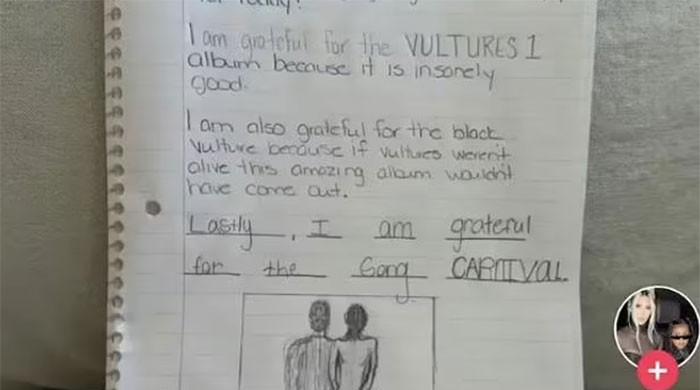 I am grateful for the VULTURES 1
album because it is insanely
good.
I am also grateful for the black
vulture because if vultures weren't
alive this amazing album wouldn't
have come out.
Lastly, I am grateful
for the Song CARNIVAL